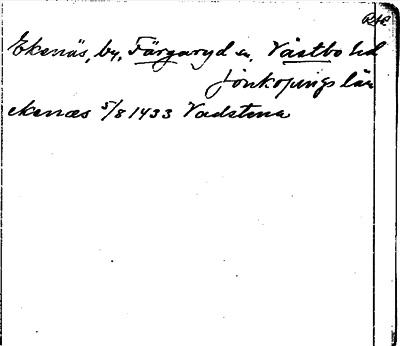 RAP
Ekenäs, by, Färgaryd sn, Västbo hd
Jönköpings län
ekenæs 5/8 1433 Vadstena